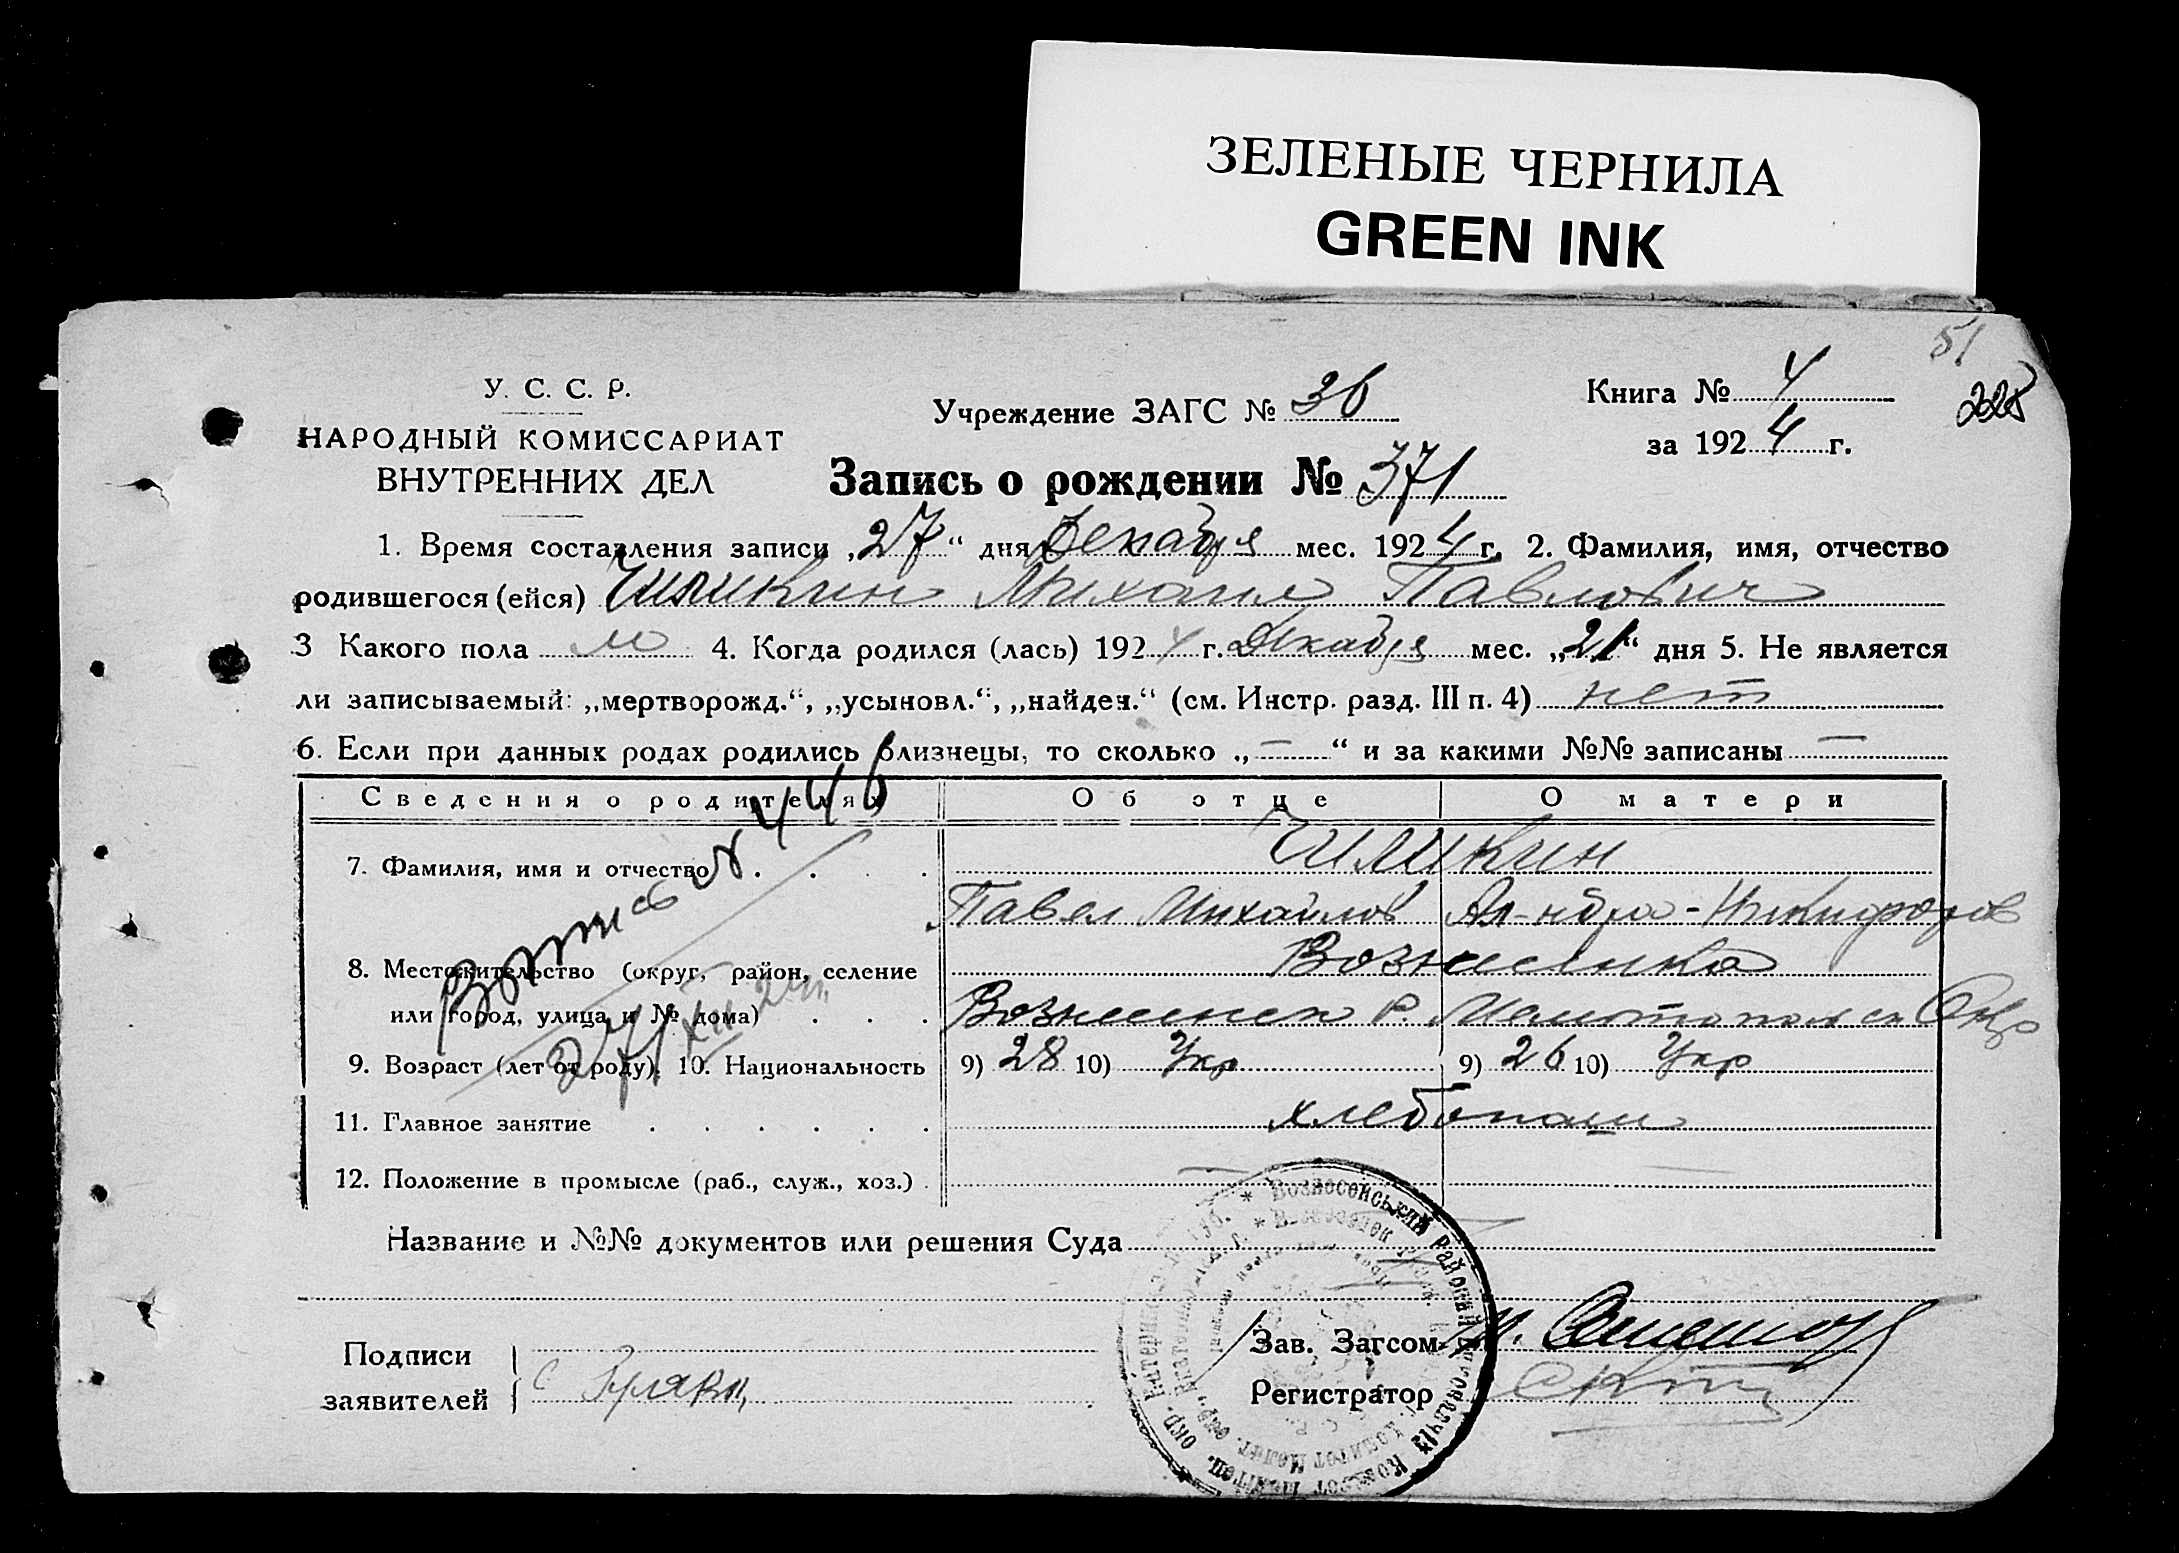 ЗЕЛЕНЫЕ ЧЕРНИЛА
GREEN INK
51
228
У. С. С. Р.
НАРОДНЫЙ КОМИССАРИАТ
ВНУТРЕННИХ ДЕЛ
Учреждение ЗАГС № 36
Книга № 4
за 1924 г.
Запись о рождении № 371
1. Время составления записи „27“ дня Декабря мес. 1924 г. 2. Фамилия, имя, отчество
родившегося (ейся) Чиликин Михаил Павлович
3 Какого пола м 4. Когда родился (лась) 1924 г. Декабря мес. „21“ дня 5. Не является
ли записываемый: „мертворожд.“, „усыновл.“, „найден.“ (см. Инстр. разд. III п. 4) нет
6. Если при данных родах родились близнецы, то сколько „—“ и за какими №№ записаны —
Сведения о родителях Об отце О матери
7. Фамилия, имя и отчество Чиликин
Павел Михайлов Ал-ндра - Никифоров
8. Местожительство (округ, район, селение Вознесенка
или город, улица и № дома) Вознесенск Р. Мелитопольск Окр
9. Возраст (лет от роду). 10. Национальность 9) 28 10) Укр 9) 26 10) Укр
11. Главное занятие хлебопаш
12. Положение в промысле (раб., служ., хоз.)
№ 446
Название и №№ документов или решения Суда
Подписи
заявителей
Зав. Загсом
Регистратор